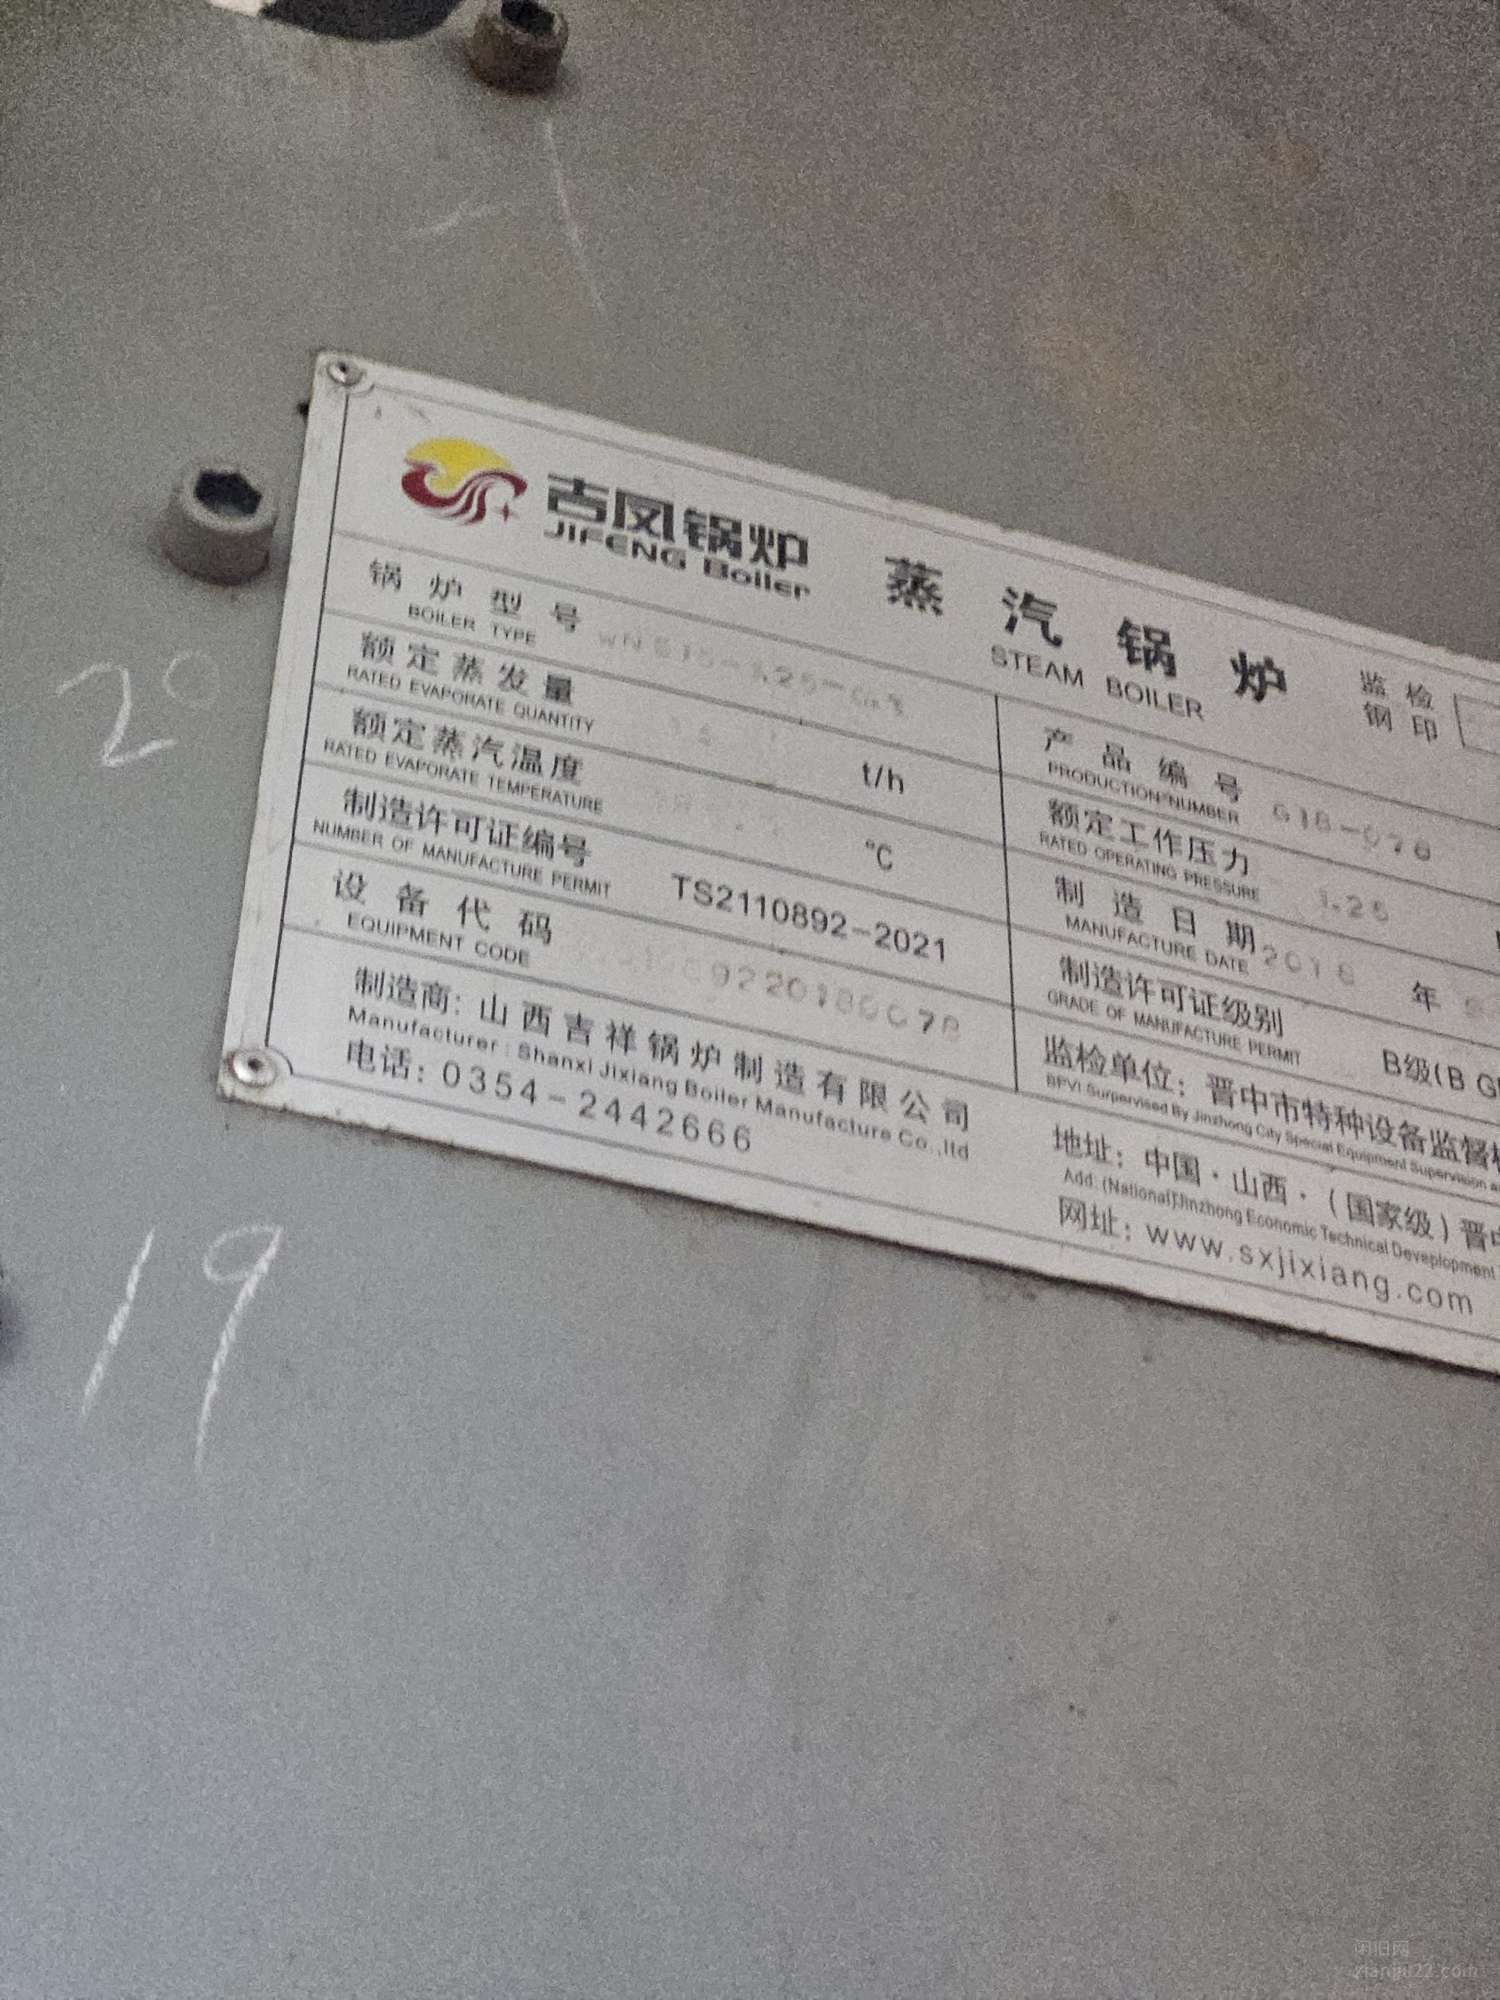 吉凤锅炉 蒸汽锅炉
JIFENG Boiler STEAM BOILER
监检
钢印
锅炉型号
BOILER TYPE
产品编号 G18-078
PRODUCTION NUMBER
额定蒸发量 t/h
RATED EVAPORATE QUANTITY
额定工作压力 1.25
RATED OPERATING PRESSURE
额定蒸汽温度 ℃
RATED EVAPORATE TEMPERATURE
制造日期 2018 年
MANUFACTURE DATE
制造许可证编号 TS2110892-2021
NUMBER OF MANUFACTURE PERMIT
制造许可证级别 B级(B
GRADE OF MANUFACTURE PERMIT
设备代码
EQUIPMENT CODE
监检单位：晋中市特种设备监督
BPVI Surpervised By Jinzhong City Special Equipment Supervision
制造商：山西吉祥锅炉制造有限公司
Manufacturer: Shanxi Jixiang Boiler Manufacture Co.,ltd
电话：0354-2442666
地址：中国·山西·（国家级）晋中
Add: (National)Jinzhong Economic Technical Deveplopment
网址：www.sxjixiang.com
20
19